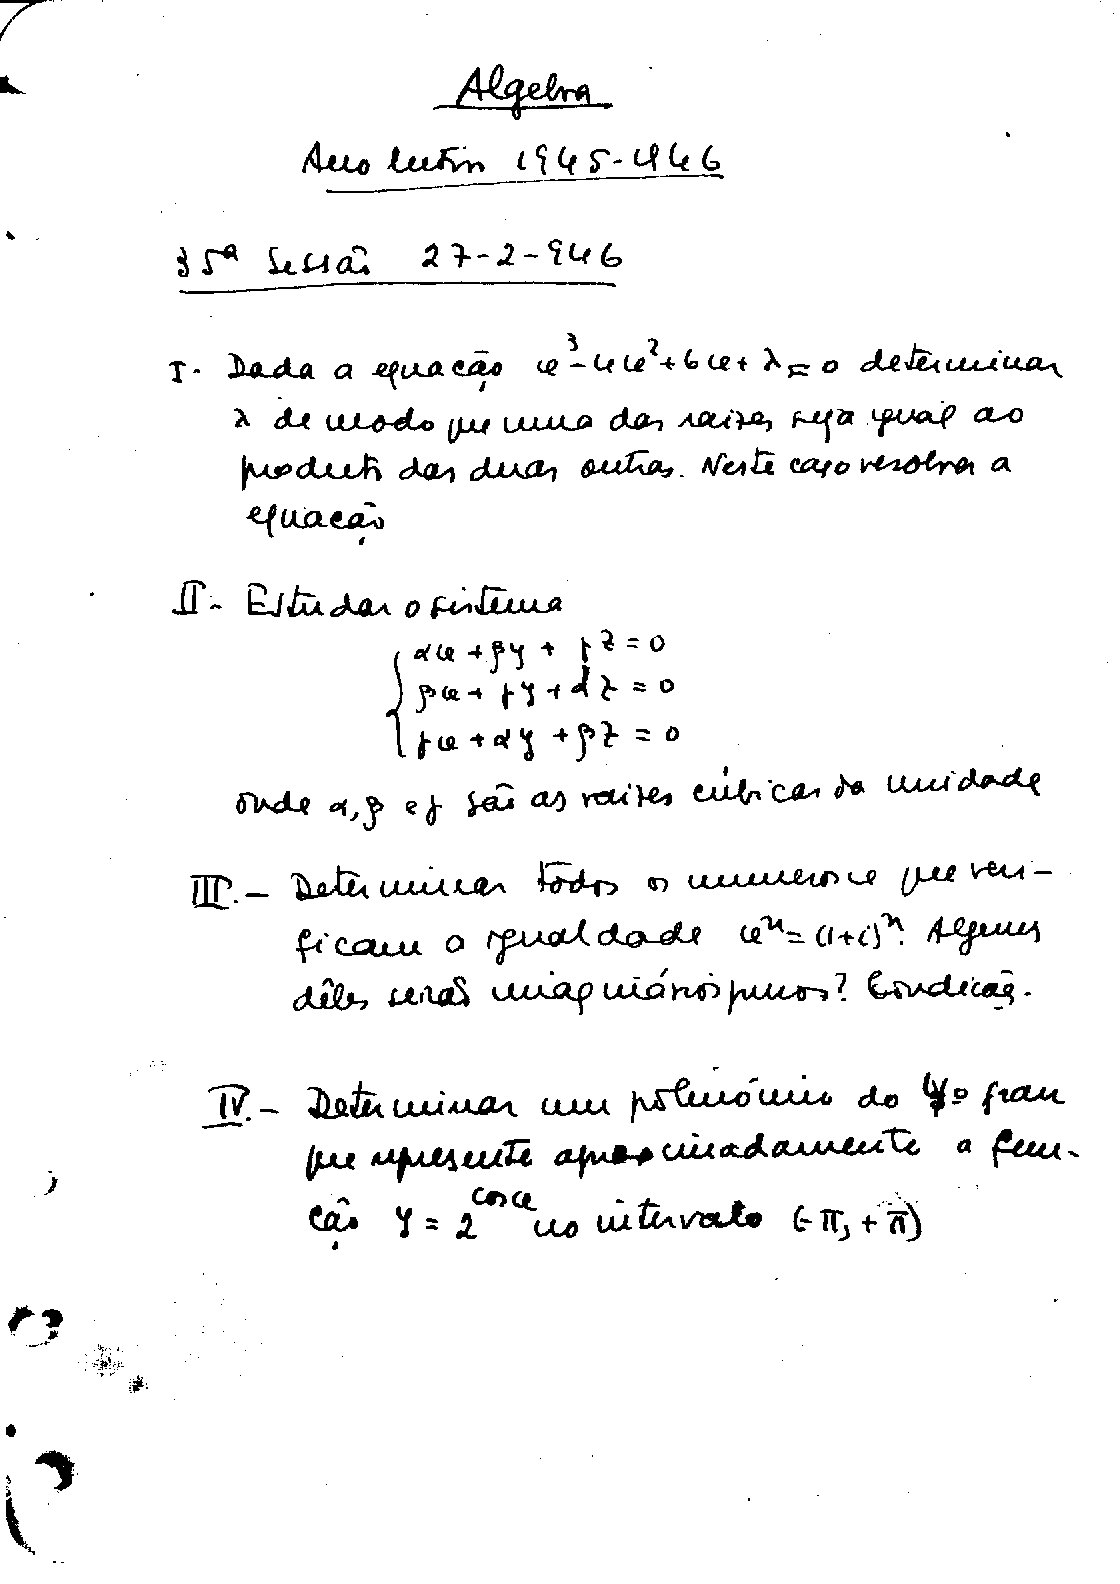 Algebra
Ano lectivo 1945-1946
35ª Sessão 27-2-946
I- Dada a equação x³-4x²+6x+λ=0 determinar
λ de modo que uma das raizes seja igual ao
producto das duas outras. Neste caso resolver a
equação
II- Estudar o sistema
αx+βy+γz=0
βx+γy+αz=0
γx+αy+βz=0
onde α, β e γ são as raizes cúbicas da unidade
III.- Determinar todos os numeros x que veri-
ficam a igualdade xⁿ=(1+i)ⁿ. Alguns
dêles serão imaginários puros? Condição.
IV.- Determinar um polinómio do 4º grau
que represente aproximadamente a fun-
ção y = 2^cosx no intervalo (-π, +π)